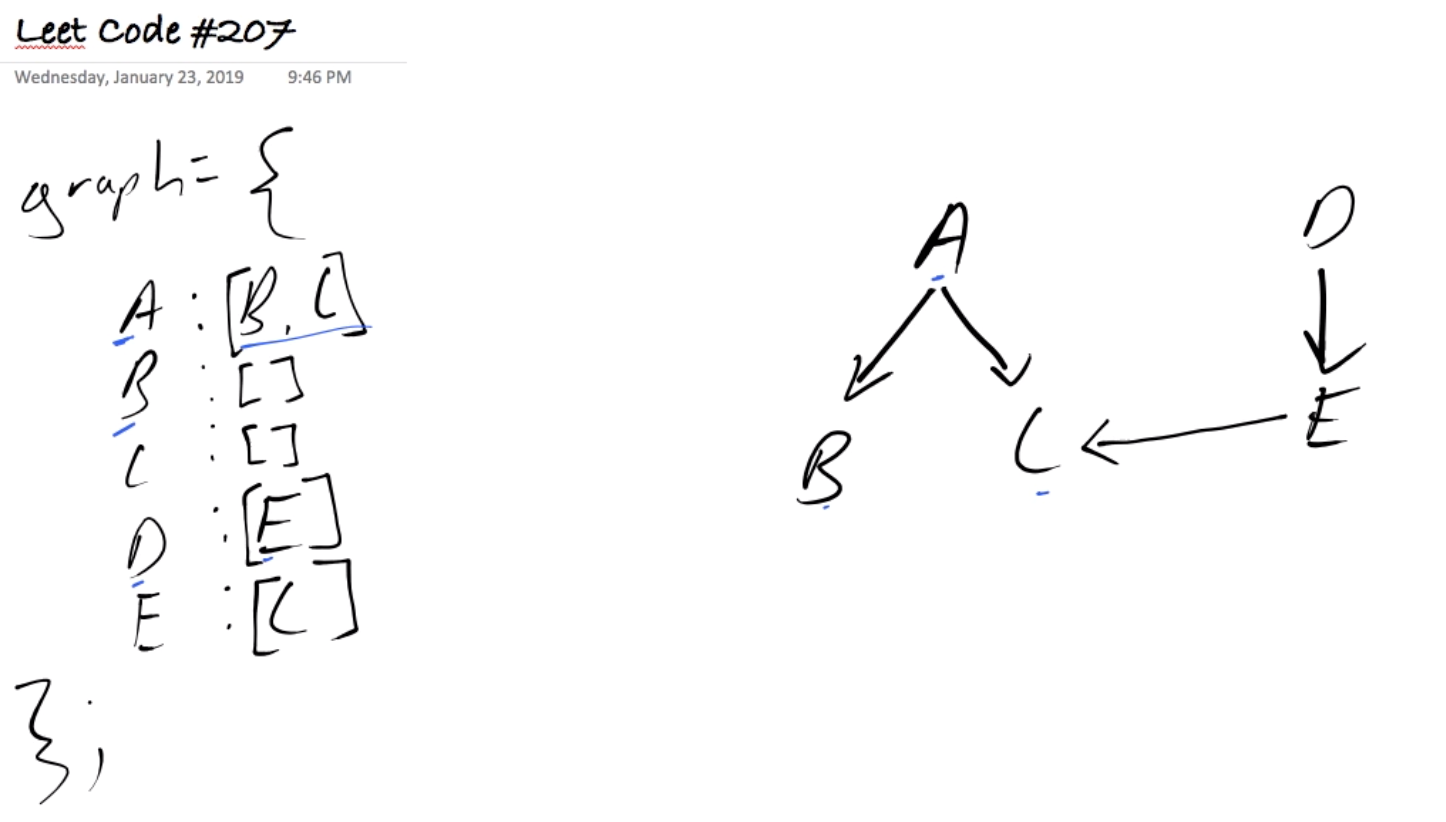 Leet Code #207
Wednesday, January 23, 2019 9:46 PM
graph= {
A : [B, C]
B : []
C : []
D : [E]
E : [C]
};
A
D
B
C
E